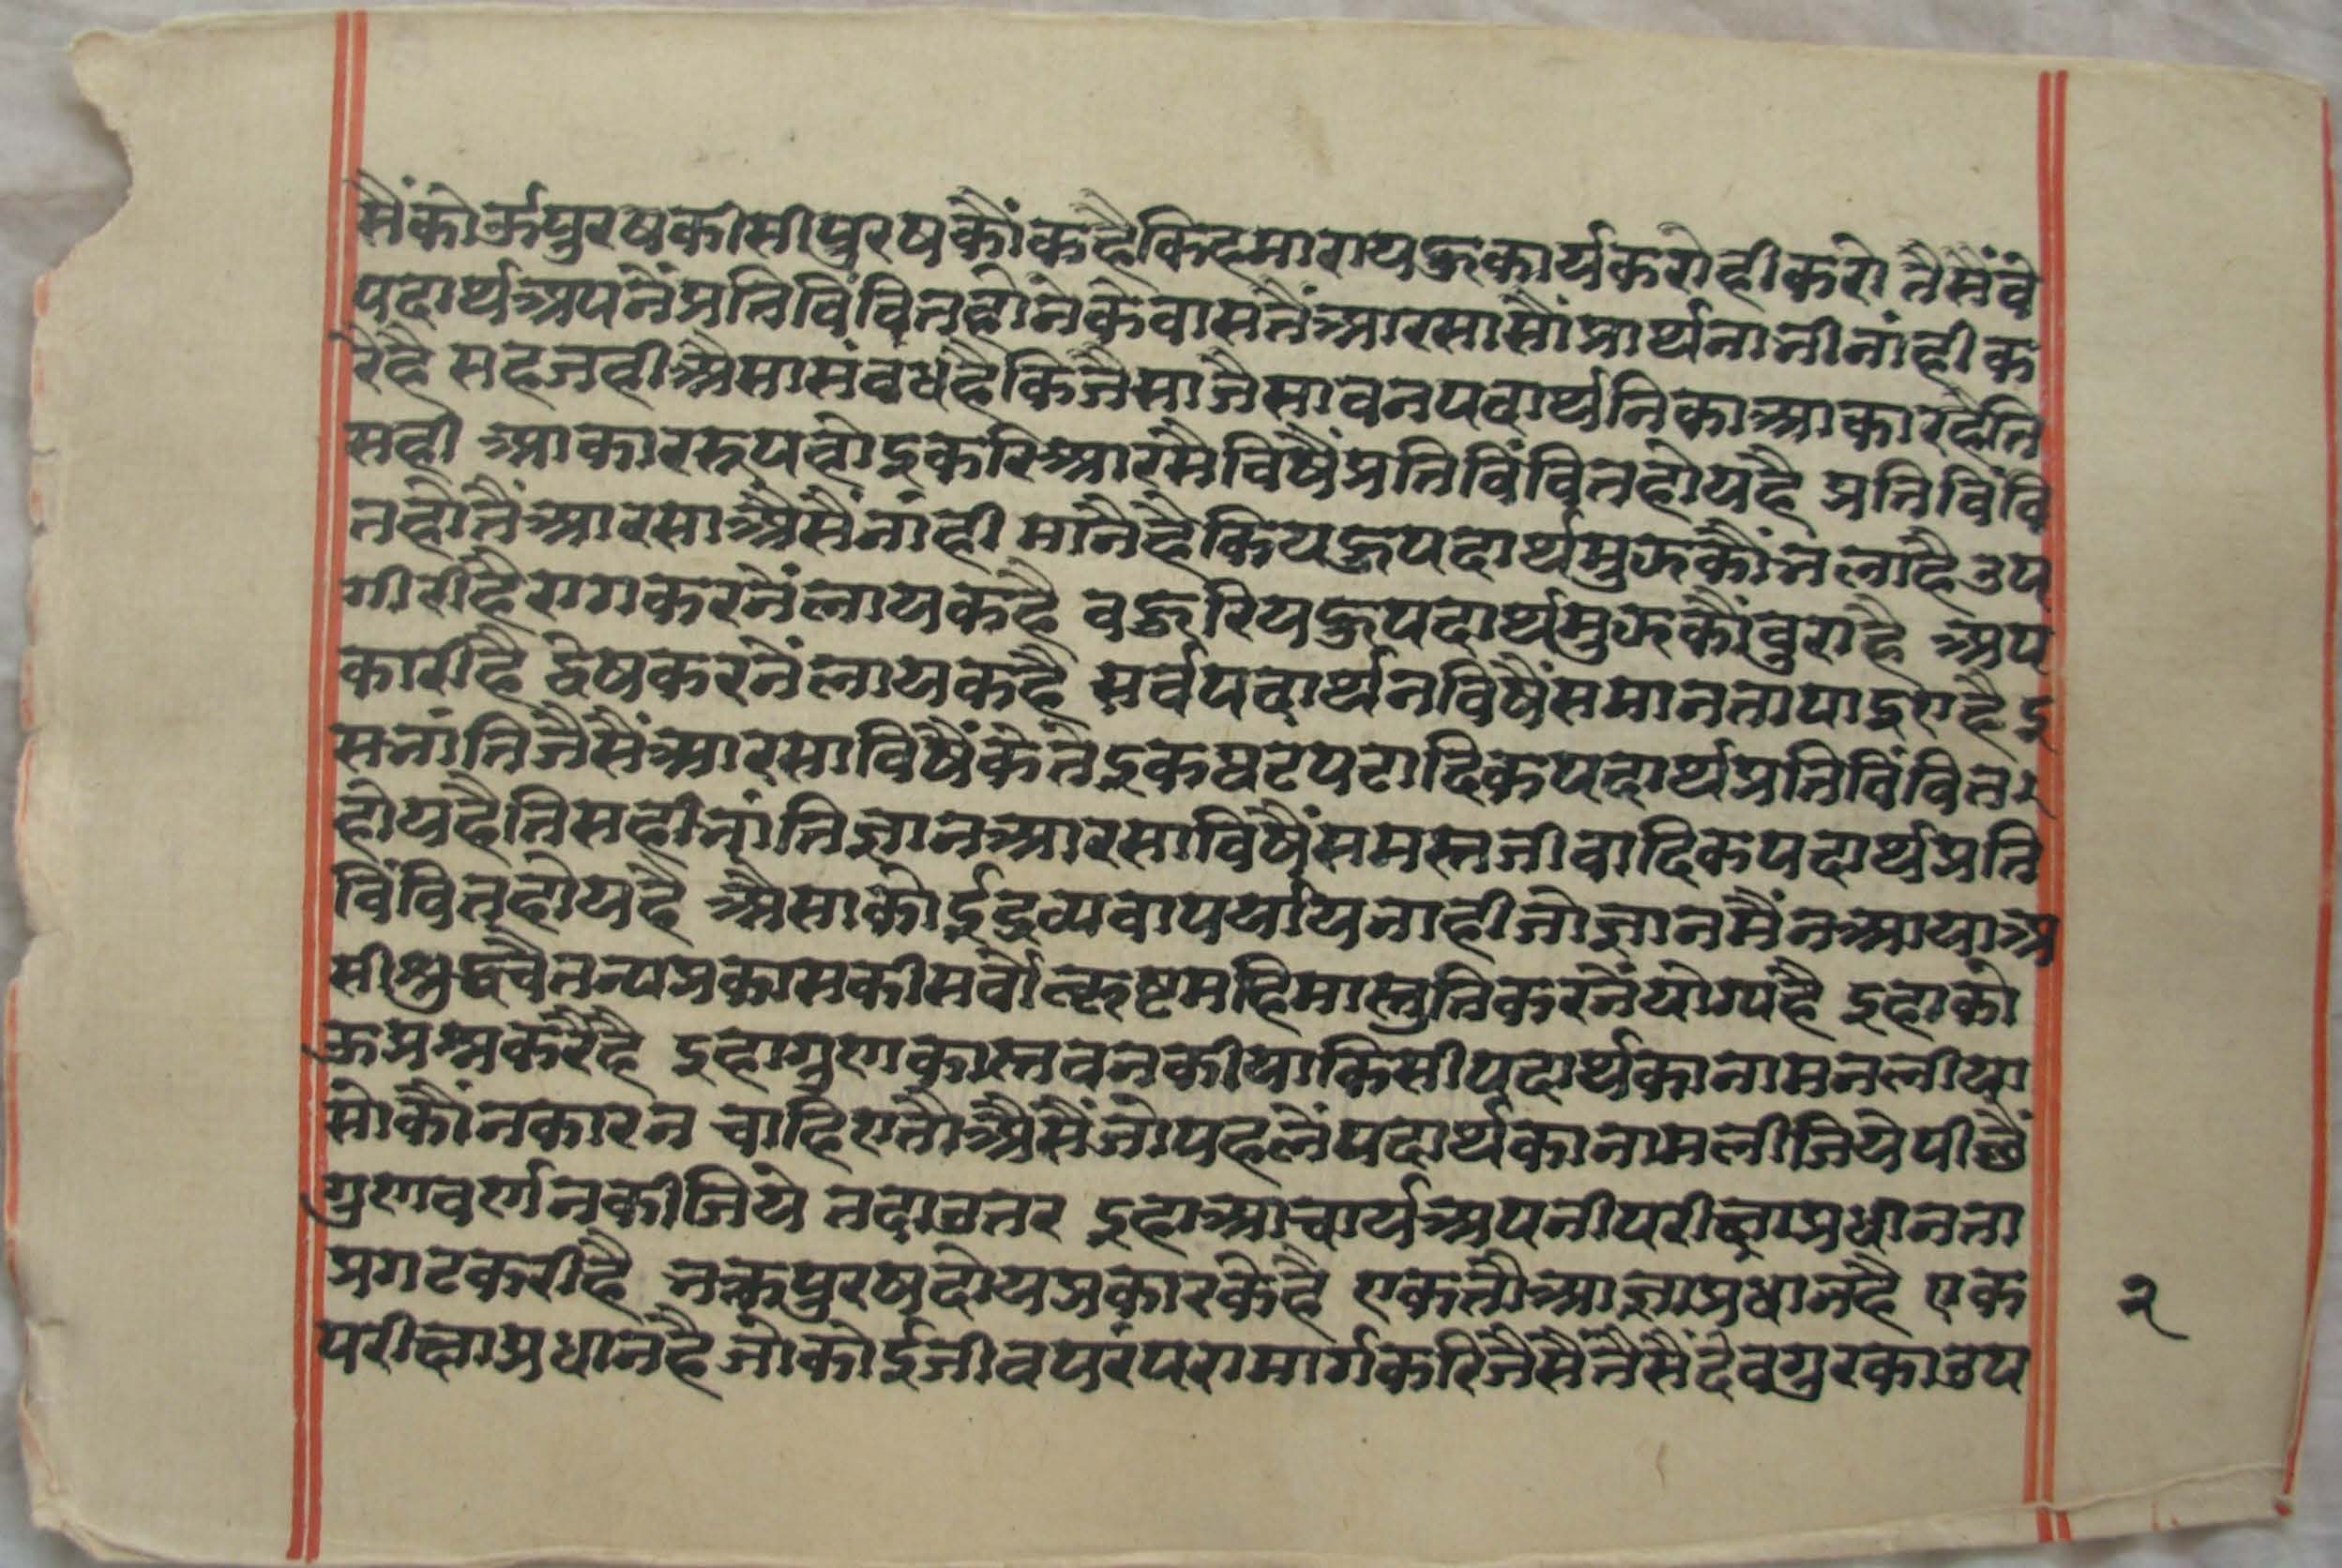 सैंकोऊपुरषकीसीपुरषकौंकहैकिहमारायहुकार्यकरोहीकरो तैसैंवे
पदार्थअपनैंप्रतिविंवितहोनेकेवासतैंआरसासौंप्रार्थनानीनांहीक
रैहै सहजहीअैसासंवधहैकिजैसाजैसावनपदार्थनिकाआकारहैति
सही आकाररूपहोइकरिआरसैविषैंप्रतिविंवितहोयहै प्रतिविंवि
तहोतैंआरसाअैसैंनांही मानैहैकियहुपदार्थमुझकौंभलाहैउप
गारीहैरागकरनैंलायकहै वहुरियहुपदार्थमुझकौंवुराहै अप
कारीहै द्वेषकरनैंलायकहै सर्वपदार्थनविषैंसमानतापाइएहै इ
सभांतिजैसैंआरसाविषैंकेतेइकघटपटादिकपदार्थप्रतिविंवित
होयहैतिसहीभांतिज्ञानआरसाविषैंसमस्तजीवादिकपदार्थप्रति
विंवितहोयहै अैसाकोईद्रव्यवापर्यायनाहीजोज्ञानमैंनआयाअ
सीशुद्धचैतन्यप्रकासकीसर्वोत्कृष्टमहिमास्तुतिकरनैंयोग्यहै इहाको
ऊप्रश्नकरैहै इहागुणकास्तवनकीयाकिसीपदार्थकानामनलीया
सोकौंनकारन चाहिएतौअैसैंजोपहलैंपदार्थकानामलीजियेपीछैं
गुणवर्णनकीजिये तदाउत्तर इहाआचार्यअपनीपरीक्षाप्रधानता
प्रगटकरीहै भक्तपुरषदोयप्रकारकेहै एकतौआज्ञाप्रधानहै एक
परीक्षाप्रधानहैजोकोईजीवपरंपरामार्गकरिजैसैतैसैंदेवगुरकाउप
२